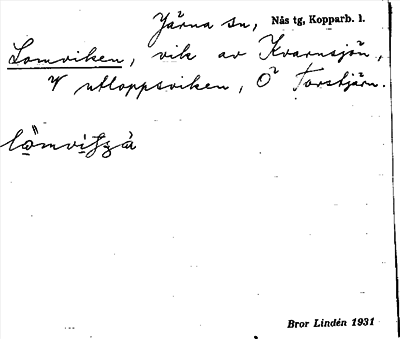 Järna sn, Nås tg, Kopparb. l.
Lomviken, vik av Kvarnsjön,
V utloppsviken, O Torstjärn.
Bror Lindén 1931